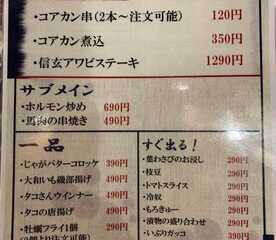 ・コアカン串(2本～注文可能) 120円
・コアカン煮込 350円
・信玄アワビステーキ 1290円
サブメイン
・ホルモン炒め 690円
・馬肉の串焼き 490円
一品
・じゃがバターコロッケ 390円
・大和いも磯部揚げ 390円
・タコさんウインナー 390円
・タコの唐揚げ 490円
・牡蠣フライ1個 290円
(2個より注文可能)
すぐ出る!
・葉わさびのお浸し 290円
・枝豆 290円
・トマトスライス 290円
・冷奴 290円
・もろきゅー 290円
・漬物の盛り合わせ 290円
・いぶりガッコ 390円